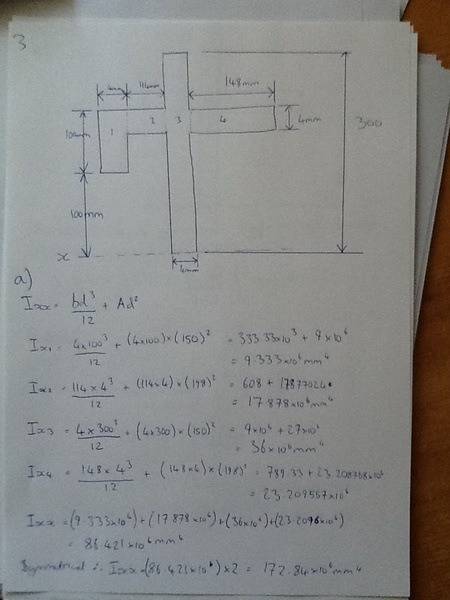 3
4mm 114mm 148mm
1 2 3 4
4mm
100mm
300
100mm
x
4mm
a)
Ixx = bd³/12 + Ad²
Ix₁ = 4x100³/12 + (4x100)x(150)² = 333.33x10³ + 9x10⁶
= 9.333x10⁶mm⁴
Ix₂ = 114x4³/12 + (114x4)x(198)² = 608 + 17877024
= 17.878x10⁶mm⁴
Ix3 = 4x300³/12 + (4x300)x(150)² = 9x10⁶ + 27x10⁶
= 36x10⁶mm⁴
Ix4 = 148x4³/12 + (148x4)x(198)² = 789.33 + 23.208768x10⁶
= 23.209557x10⁶
Ixx = (9.333x10⁶)+(17.878x10⁶)+(36x10⁶)+(23.2096x10⁶)
= 86.421x10⁶mm⁴
Symmetrical ∴ Ixx = (86.421x10⁶)x2 = 172.84x10⁶mm⁴